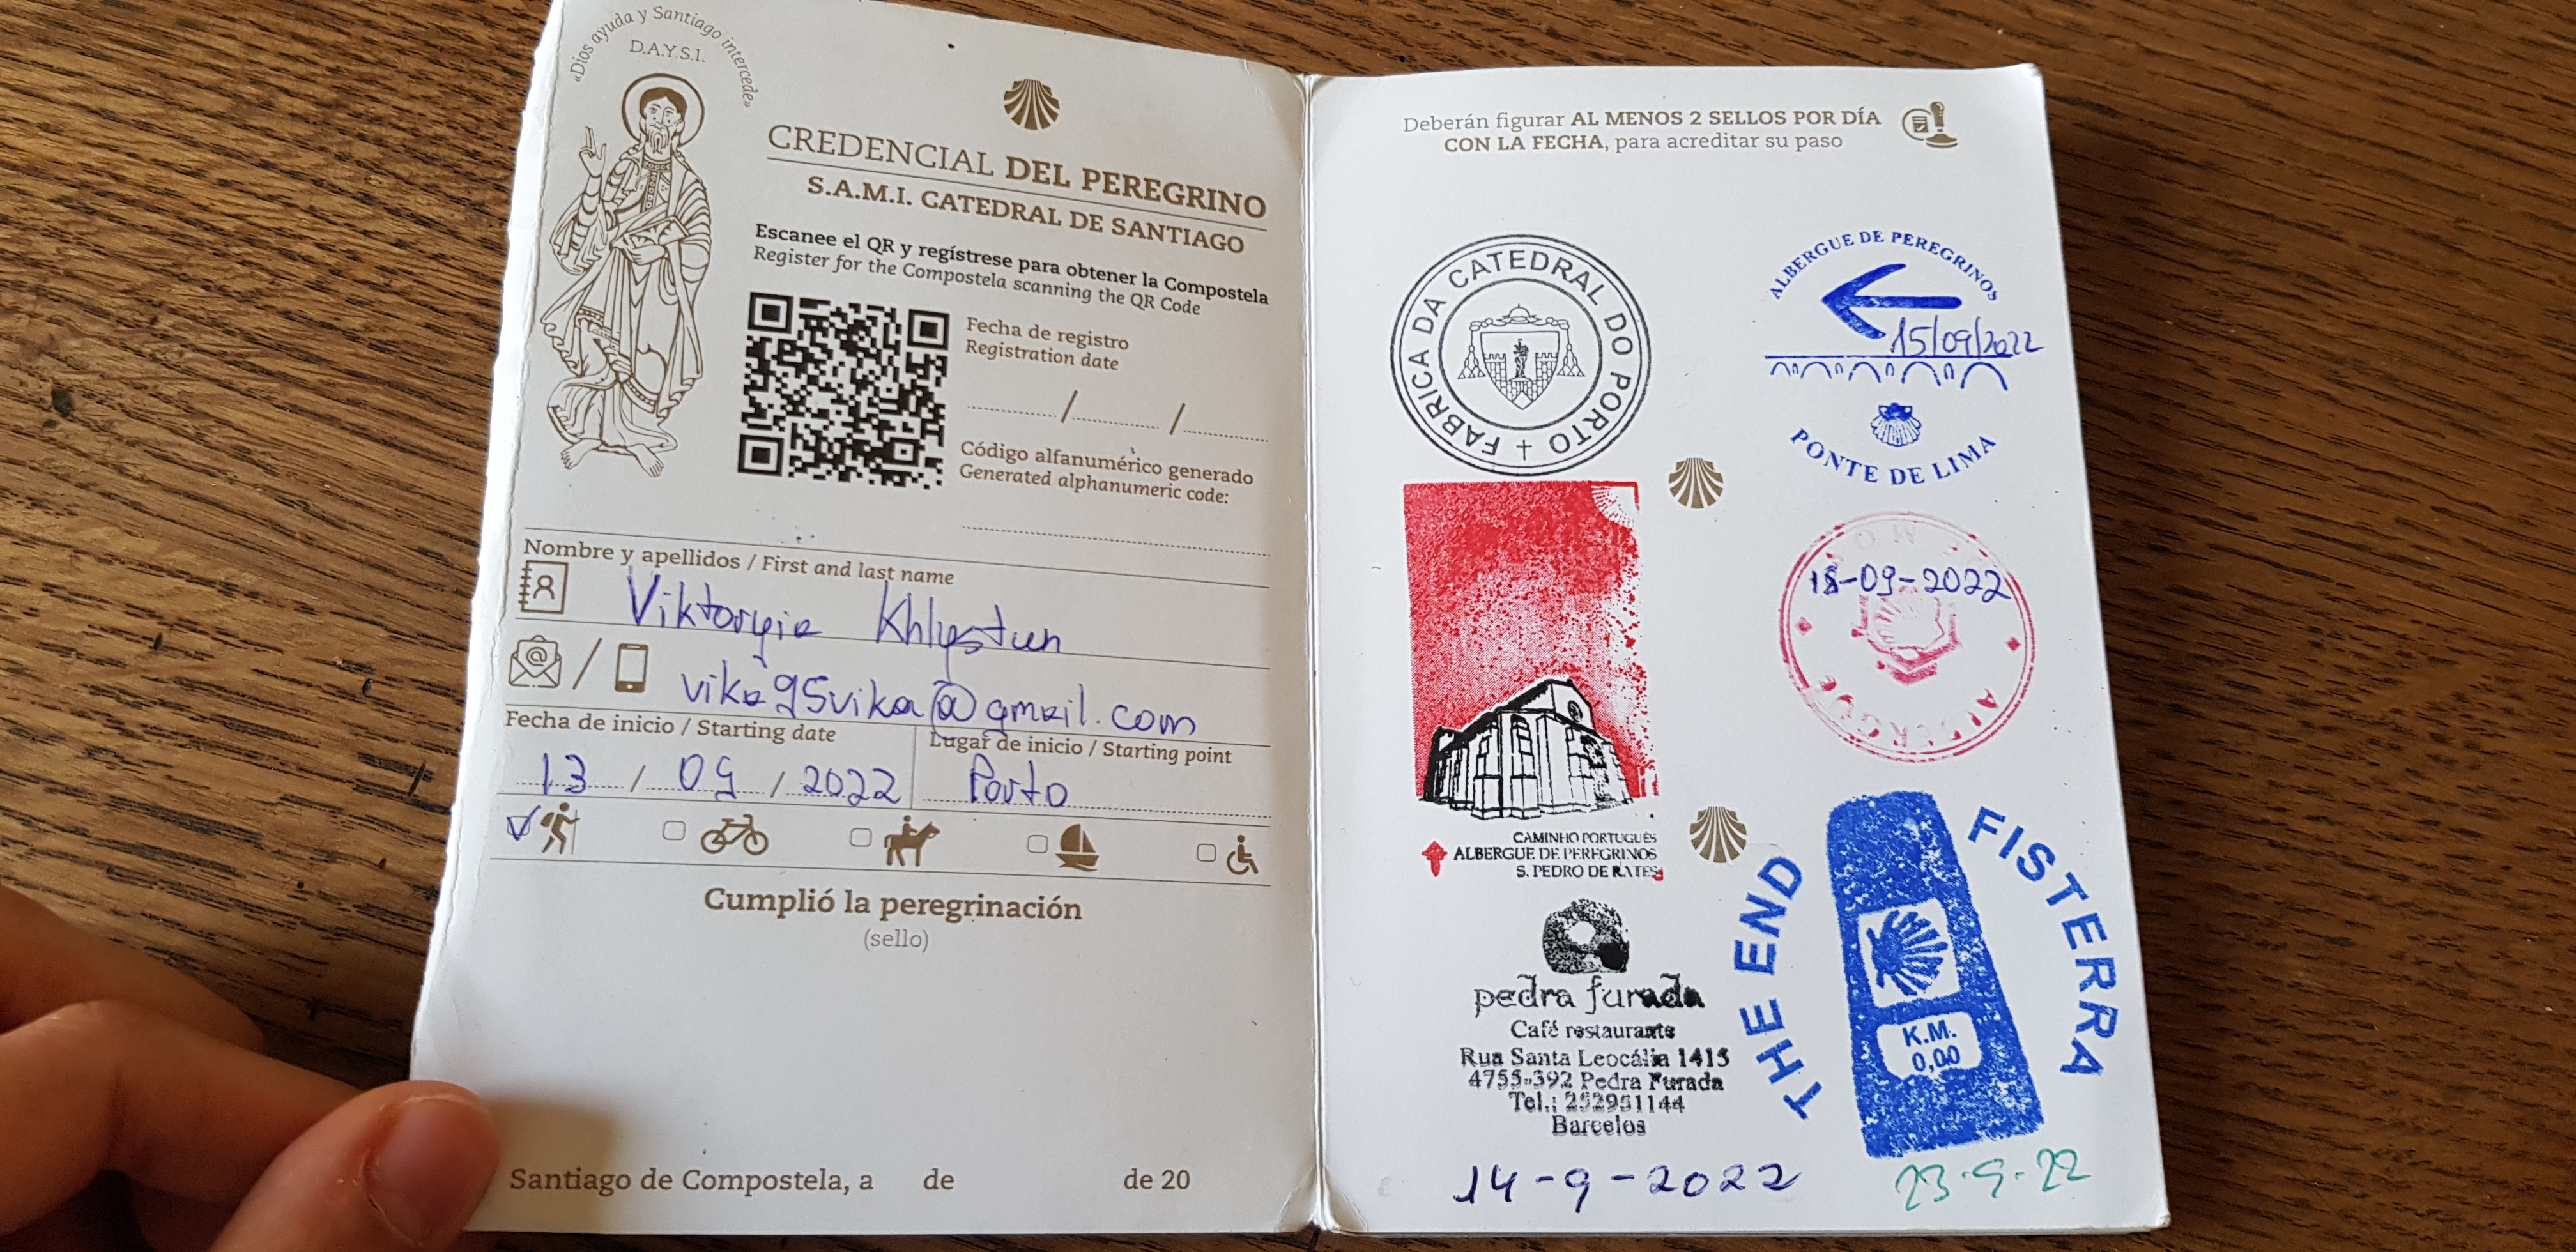 «Dios ayuda y Santiago intercede»
D.A.Y.S.I.
CREDENCIAL DEL PEREGRINO
S.A.M.I. CATEDRAL DE SANTIAGO
Escanee el QR y regístrese para obtener la Compostela
Register for the Compostela scanning the QR Code
Fecha de registro
Registration date
/ /
Código alfanumérico generado
Generated alphanumeric code:
Nombre y apellidos / First and last name
Viktoryia Khlystun
@ / vika95vika@gmail.com
Fecha de inicio / Starting date
13 / 09 / 2022
Lugar de inicio / Starting point
Porto
Cumplió la peregrinación
(sello)
Santiago de Compostela, a de de 20
Deberán figurar AL MENOS 2 SELLOS POR DÍA
CON LA FECHA, para acreditar su paso
FABRICA DA CATEDRAL DO PORTO
CAMINHO PORTUGUÊS
ALBERGUE DE PEREGRINOS
S. PEDRO DE RATES
pedra furada
Café restaurante
Rua Santa Leocália 1415
4755-392 Pedra Furada
Tel.: 252951144
Barcelos
14-9-2022
ALBERGUE DE PEREGRINOS
15/09/2022
PONTE DE LIMA
18-09-2022
ALBERGUE
THE END
FISTERRA
K.M.
0,00
23-9-22